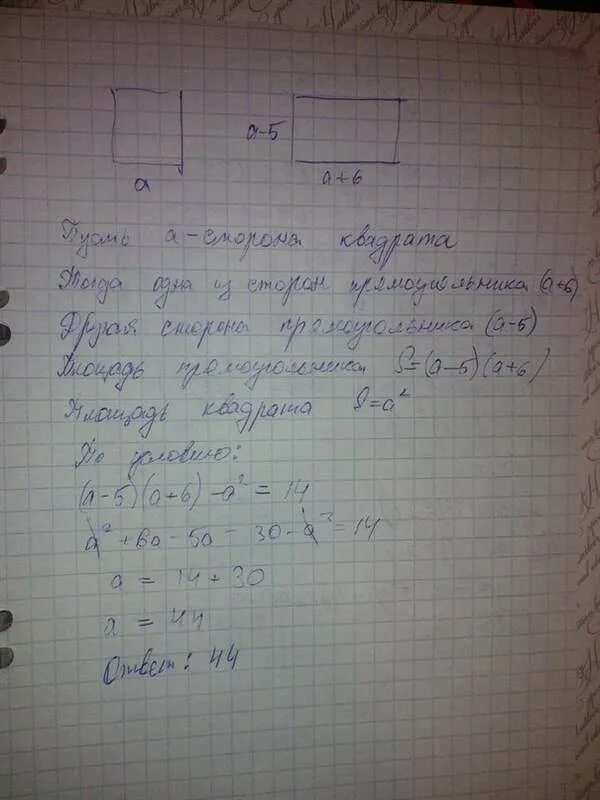 a
a-5
a+6
Пусть a - сторона квадрата
Тогда одна из сторон прямоугольника (a+6)
Другая сторона прямоугольника (a-5)
Площадь прямоугольника S=(a-5)(a+6)
Площадь квадрата S=a²
По условию:
(a-5)(a+6)-a²=14
a²+6a-5a-30-a²=14
a=14+30
a=44
Ответ: 44